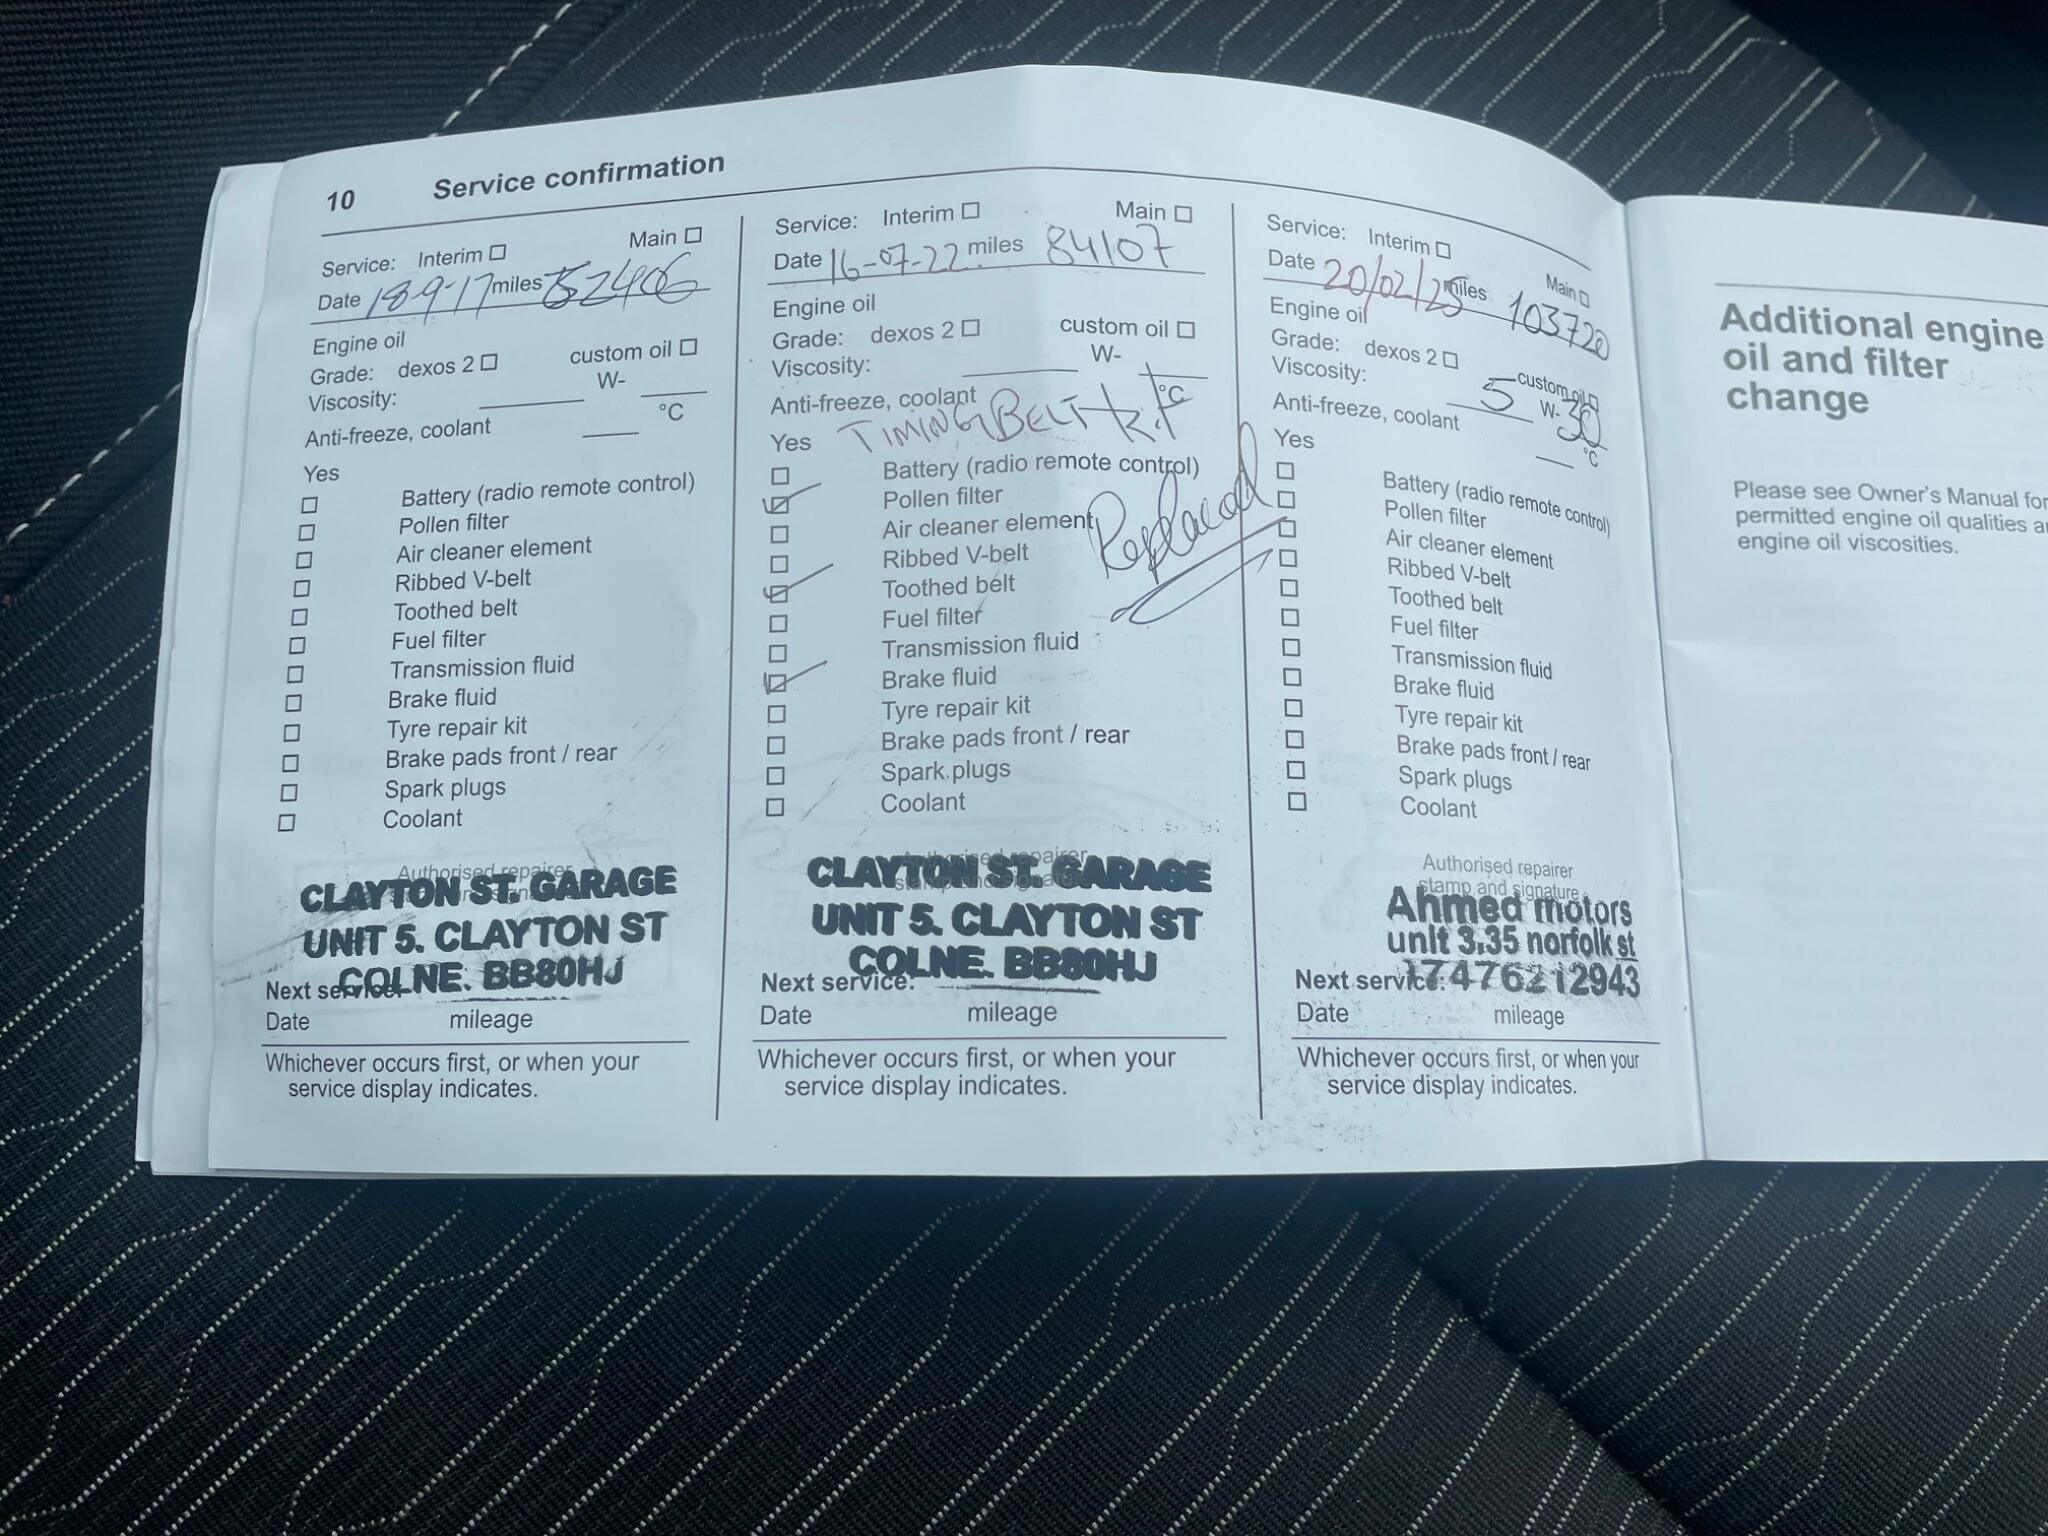 10 Service confirmation
Service: Interim □ Main □
Date 18-9-17 miles 52406
Engine oil
Grade: dexos 2 □ custom oil □
Viscosity: W-
Anti-freeze, coolant °C
Yes
□ Battery (radio remote control)
□ Pollen filter
□ Air cleaner element
□ Ribbed V-belt
□ Toothed belt
□ Fuel filter
□ Transmission fluid
□ Brake fluid
□ Tyre repair kit
□ Brake pads front / rear
□ Spark plugs
□ Coolant
Authorised repairer
CLAYTON ST. GARAGE
UNIT 5. CLAYTON ST
COLNE. BB80HJ
Next service:
Date mileage
Whichever occurs first, or when your
service display indicates.
Service: Interim □ Main □
Date 16-07-22 miles 84107
Engine oil
Grade: dexos 2 □ custom oil □
Viscosity: W-
Anti-freeze, coolant °C
Yes TIMING BELT kit
□ Battery (radio remote control)
☑ Pollen filter
Replaced
□ Air cleaner element
□ Ribbed V-belt
☑ Toothed belt
□ Fuel filter
□ Transmission fluid
☑ Brake fluid
□ Tyre repair kit
□ Brake pads front / rear
□ Spark plugs
□ Coolant
Authorised repairer
stamp and signature
CLAYTON ST. GARAGE
UNIT 5. CLAYTON ST
COLNE. BB80HJ
Next service:
Date mileage
Whichever occurs first, or when your
service display indicates.
Service: Interim □ Main □
Date 20/02/25 miles 103720
Engine oil
Grade: dexos 2 □ custom oil □
Viscosity: 5 W-30
Anti-freeze, coolant °C
Yes
□ Battery (radio remote control)
□ Pollen filter
□ Air cleaner element
□ Ribbed V-belt
□ Toothed belt
□ Fuel filter
□ Transmission fluid
□ Brake fluid
□ Tyre repair kit
□ Brake pads front / rear
□ Spark plugs
□ Coolant
Authorised repairer
stamp and signature
Ahmed motors
unit 3.35 norfolk st
Next service: 17476212943
Date mileage
Whichever occurs first, or when your
service display indicates.
Additional engine
oil and filter
change
Please see Owner's Manual for
permitted engine oil qualities
engine oil viscosities.